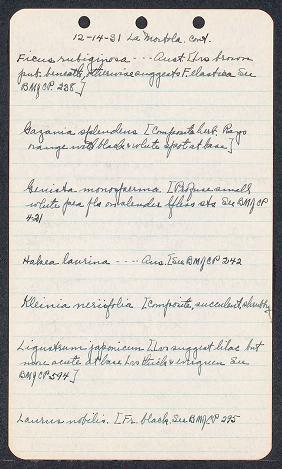 12-14-31 La Mortola. Cont.
Ficus rubiginosa --- Aust [Lvs brown
pub. beneath, otherwise suggests F. elastica See
BM&CP. 238.]
Gazania splendens [Composite herb. Rays
orange with black & white spot at base]
Genista monosperma [Profuse small
white pea fls on slender lfless sts See BM&CP
421
Hakea laurina ---- Aus. [See BM&CP 242
Kleinia neriifolia [Composite, succulent, shrubby
Ligustrum japonicum [Lvs suggest lilac but
more acute at base Lvs thick & evergreen See
BM&CP 594]
Laurus nobilis. [Fr. black. See BM&CP 295